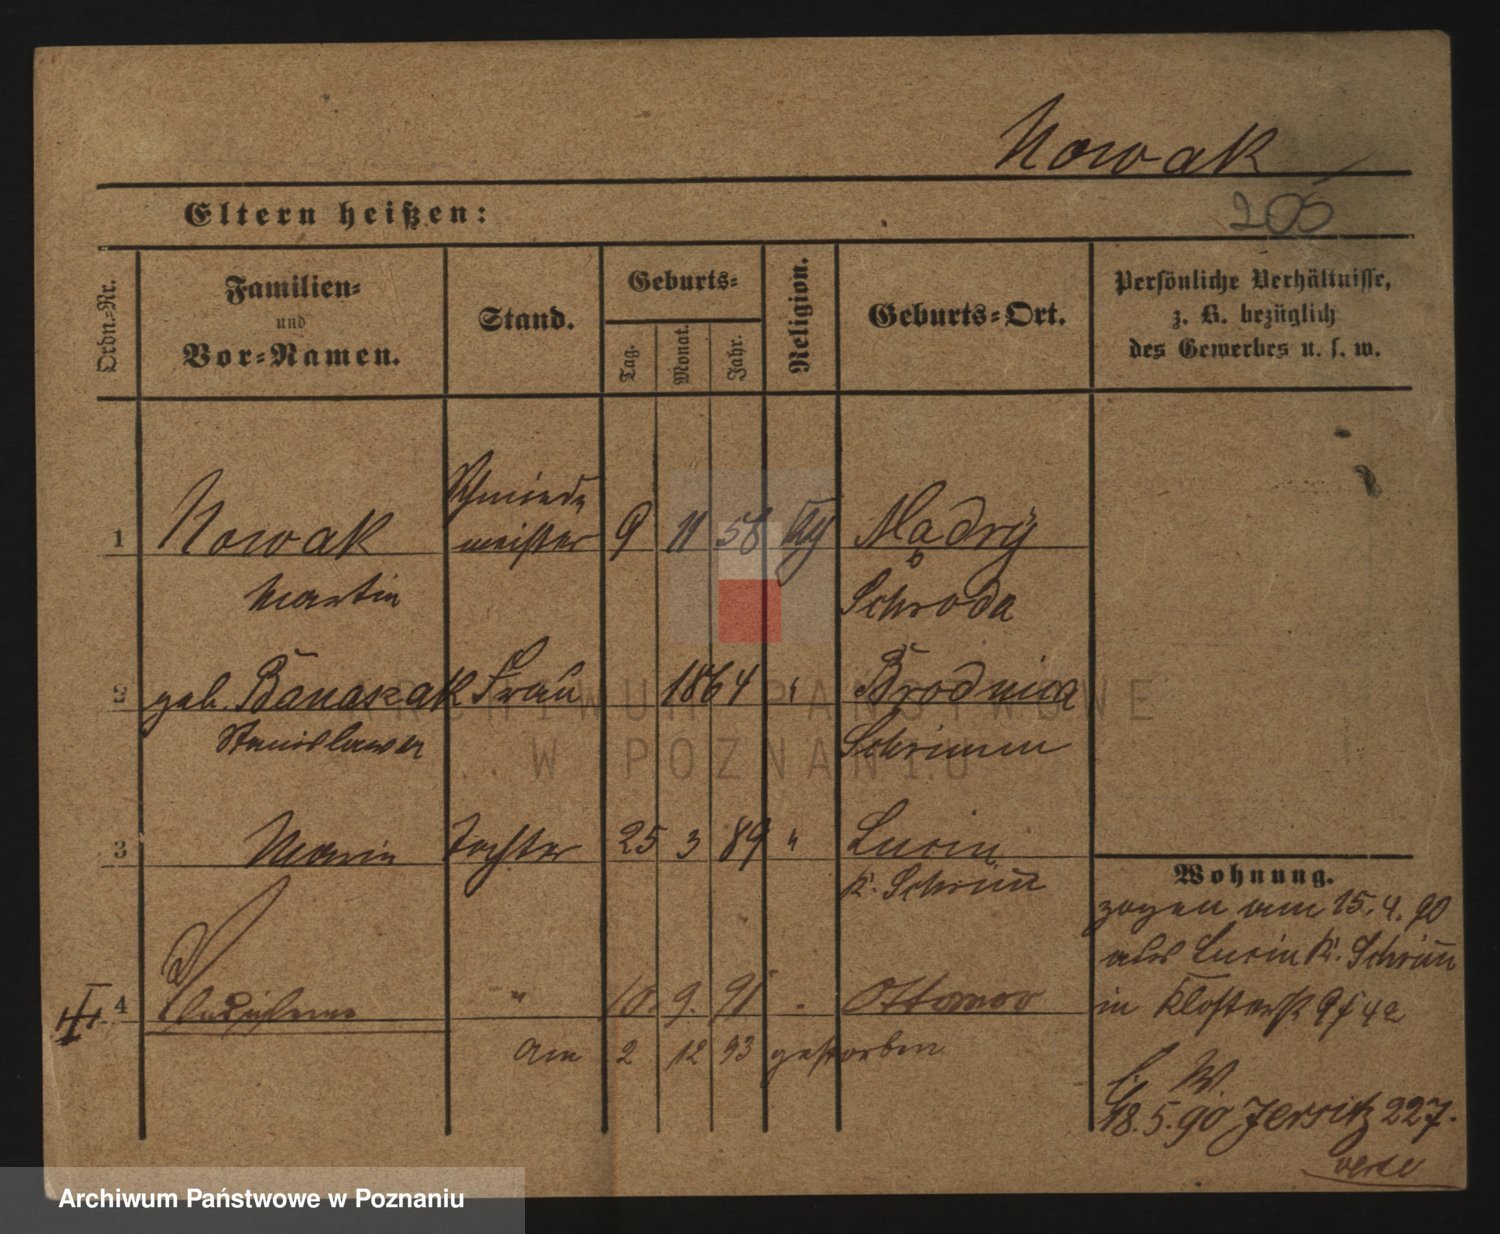 Nowak
205
Eltern heißen:
Ordn.-Nr.
Familien-
und
Vor-Namen.
Stand.
Geburts-
Tag.
Monat.
Jahr.
Religion.
Geburts-Ort.
Persönliche Verhältnisse,
z. B. bezüglich
des Gewerbes u. s. w.
Schmiede
1 Nowak meister 9 11 58 Mądry
Martin Schroda
2 geb. Banaszak Frau 1864 " Brodnica
Stanislawa Schrimm
3 Maria Tochter 25 3 89 " Lucin
K. Schrimm
Wohnung.
zogen am 15.4.90
aus Lucin K. Schrimm
in Klosterst
4 " 10. 9. 91 Ottorowo
am 2 12 93 gestorben
18.5.90 Jersitz 227.
ARCHIWUM PAŃSTWOWE
W POZNANIU
Archiwum Państwowe w Poznaniu